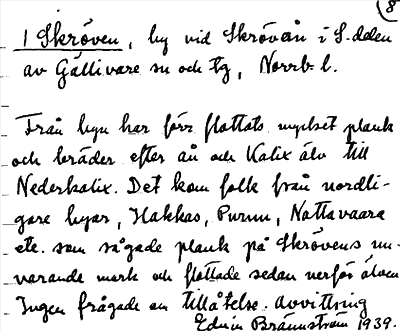 8
1 Skröven, by vid Skröven i S. delen
av Gällivare sn och tg, Norrb. l.
Från byn har förr flottats mycket plank
och bräder efter ån och Kalix älv till
Nederkalix. Det kom folk från nordli-
gare byar, Hakkas, Purnu, Nattavaara
etc. som sågade plank på Skrövens nu-
varande mark och flottade sedan nerför älven
Ingen frågade om tillåtelse. avvittring
Edvin Brännström 1939.